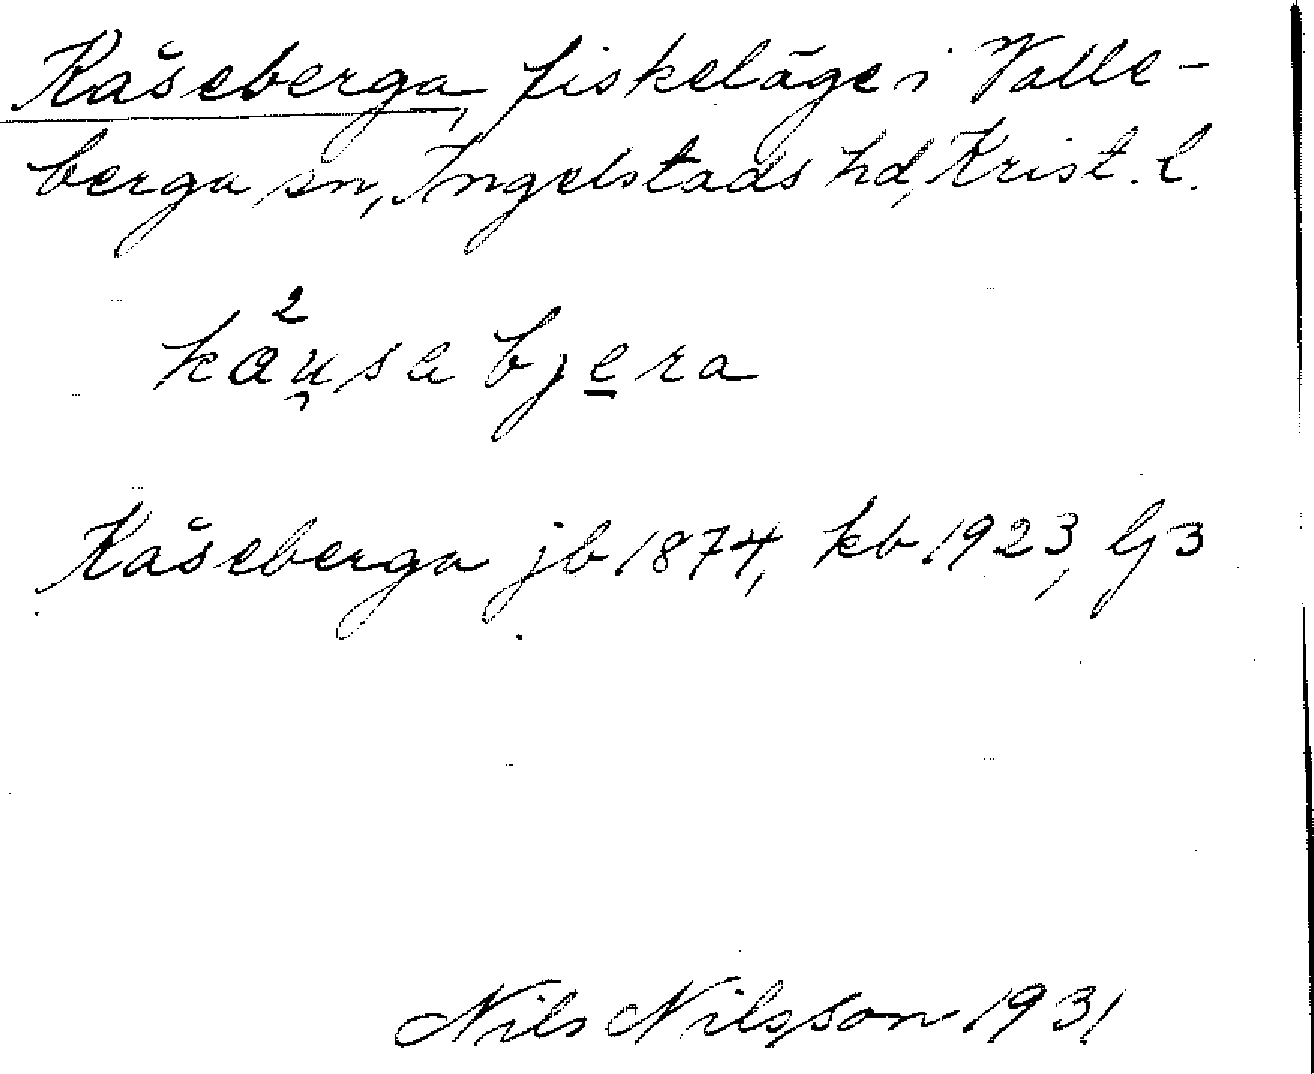 Kåseberga, fiskeläge i Valle-
berga sn, Ingelstads hd, Krist. l.
2
kau̯sabjera
Kåseberga jb 1874, kb 1923, G3
Nils Nilsson 1931